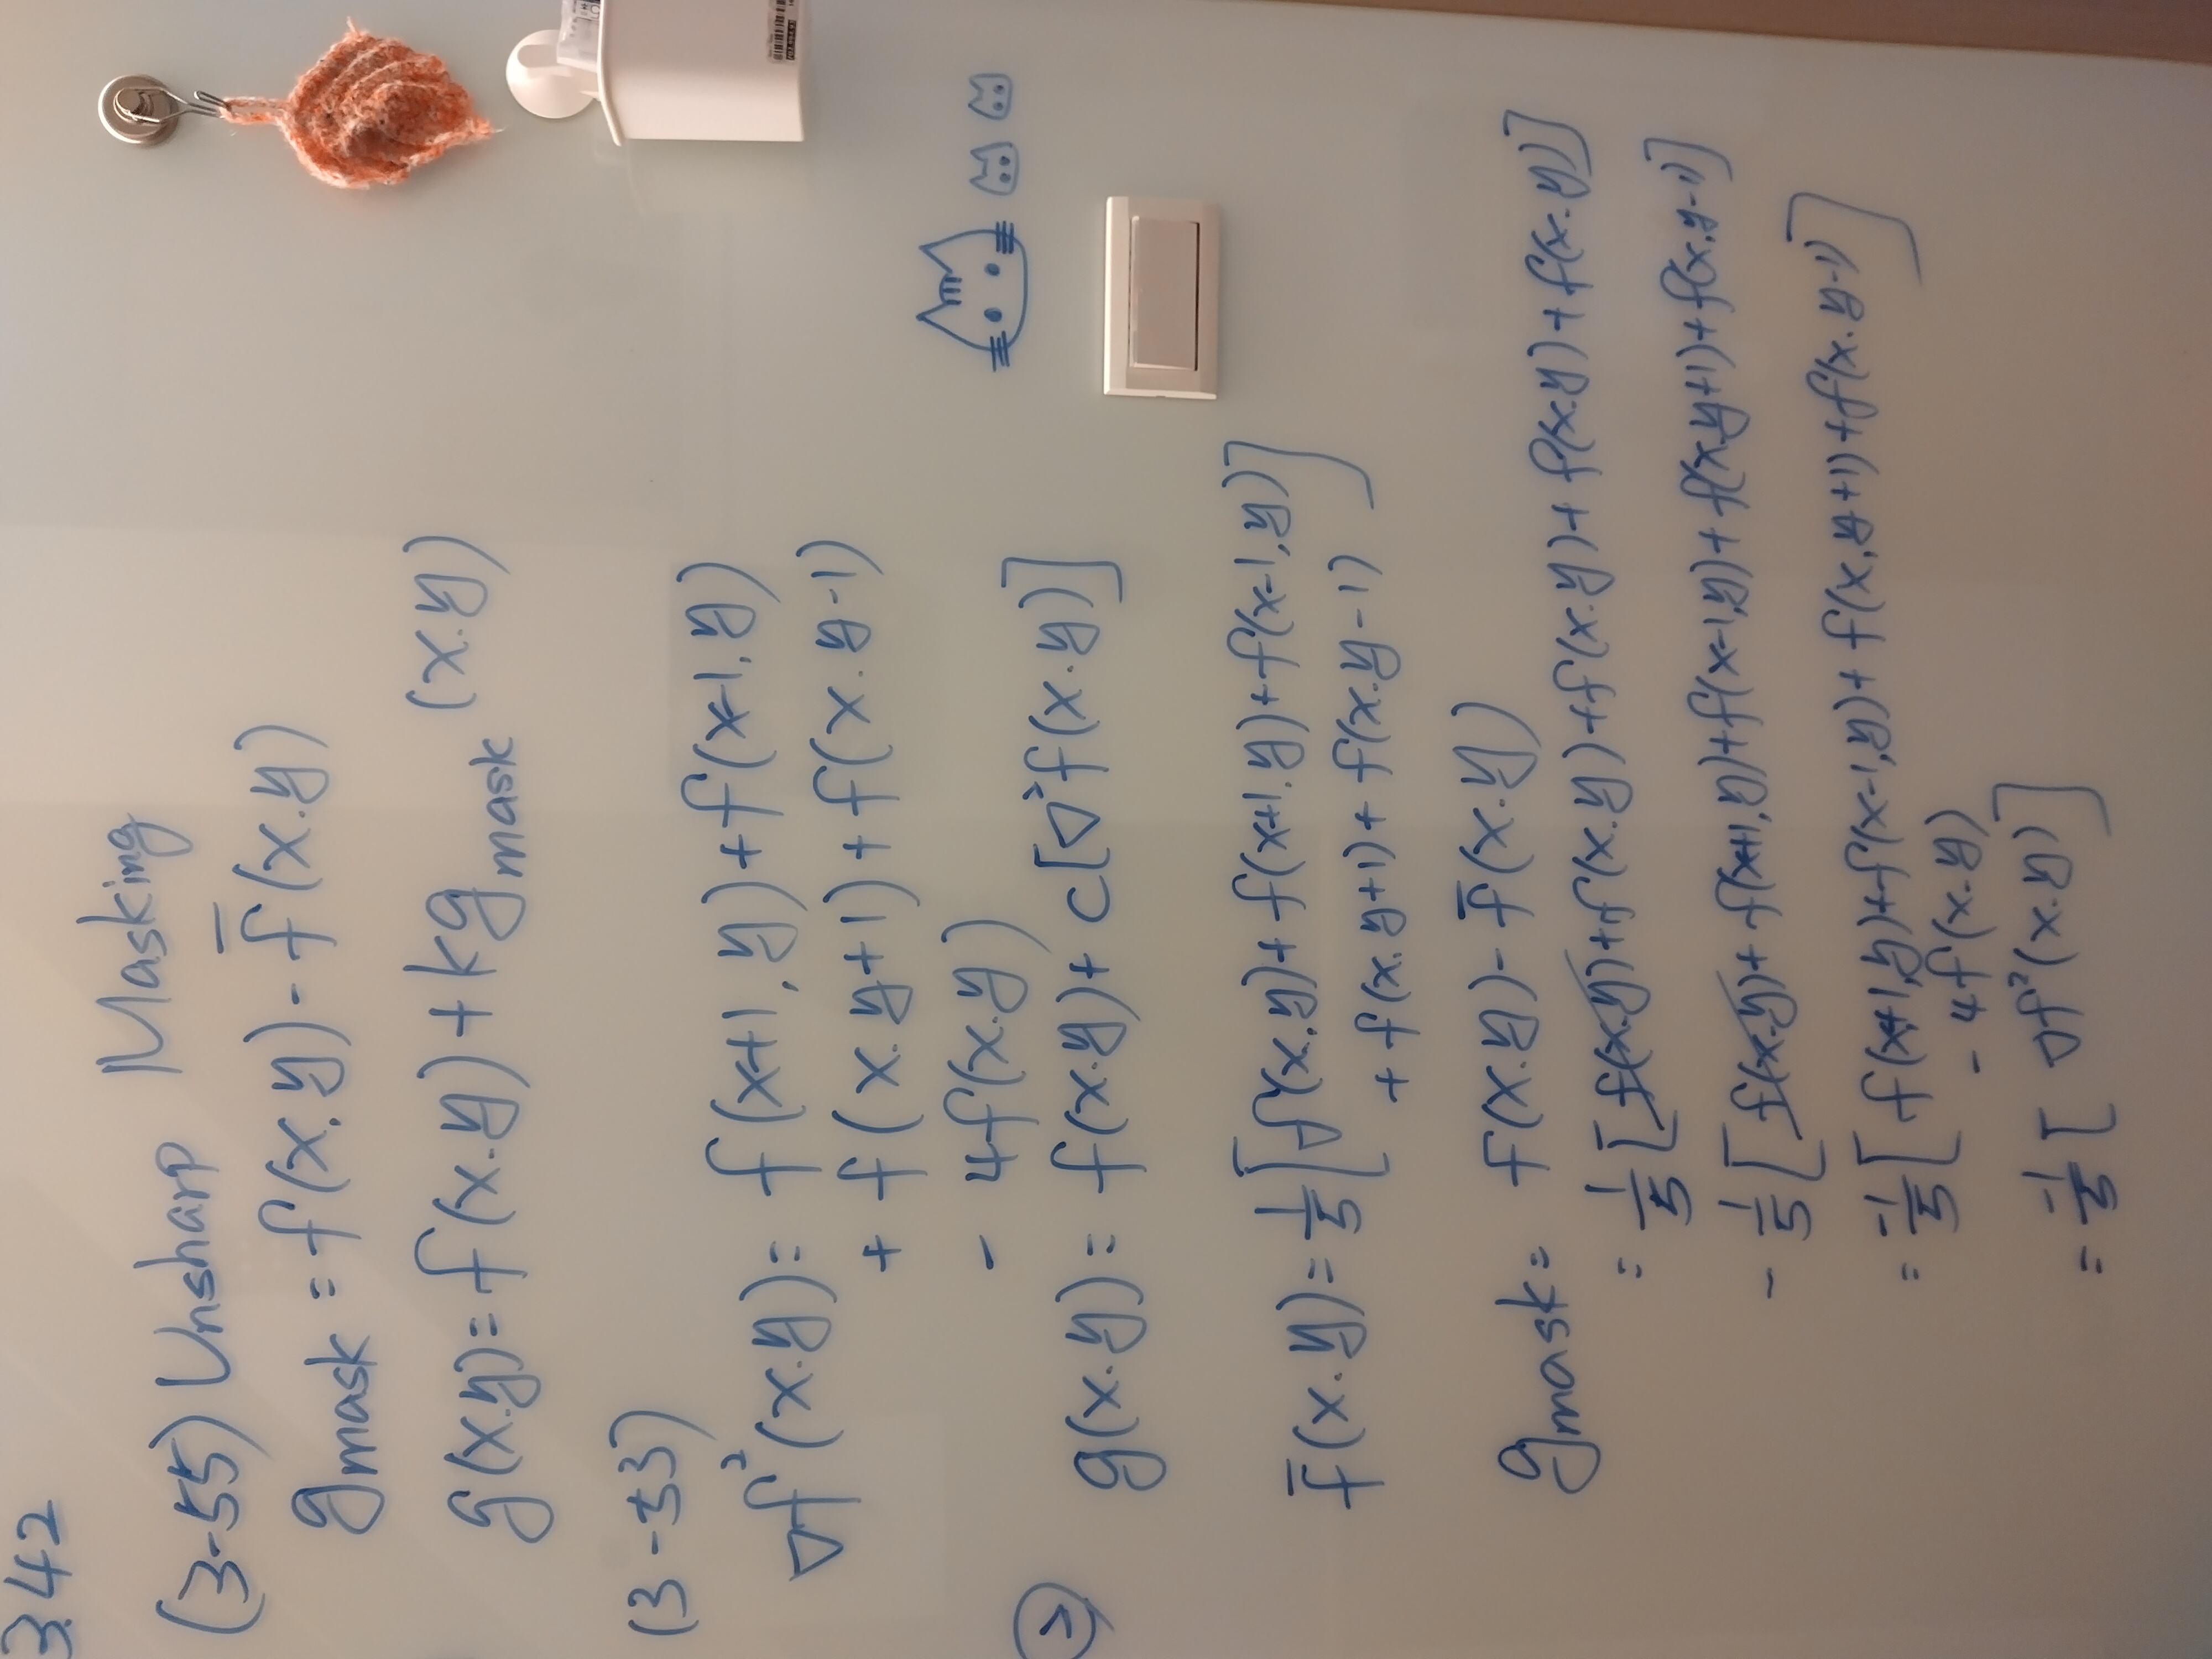 3.42
(3-55) Unsharp Masking
g mask = f(x,y) - f̅(x.y)
g(x.y) = f(x.y) + k g mask (x.y)
(3-53)
▽f²(x.y) = f(x+1,y) + f(x-1,y)
+ f(x.y+1) + f(x.y-1)
- 4f(x.y)
g(x.y) = f(x.y) + c[▽²f(x.y)]
f̅(x.y) = 1/5 [f(x,y) + f(x+1,y) + f(x-1,y)
+ f(x.y+1) + f(x.y-1)]
g mask = f(x.y) - f̅(x.y)
= 1/5 [f(x.y) + f(x.y) + f(x.y) + f(x.y) + f(x.y)]
- 1/5 [f(x.y) + f(x+1,y) + f(x-1,y) + f(x.y+1) + f(x,y-1)]
= -1/5 [f(x+1,y) + f(x-1,y) + f(x,y+1) + f(x.y-1)
- 4f(x.y)]
= -1/5 [▽f²(x.y)]